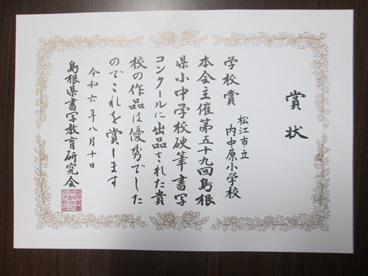 賞状
学校賞
松江市立
内中原小学校
本会主催第五十九回島根
県小中学校硬筆書写
コンクールに出品された貴
校の作品は優秀でした
のでこれを賞します
令和六年八月十日
島根県書写教育研究会